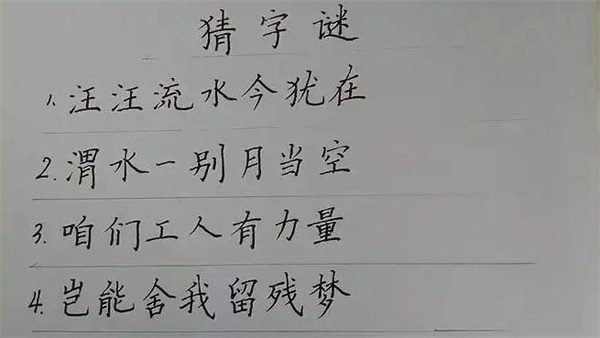 猜字谜
1. 汪汪流水今犹在
2. 渭水一别月当空
3. 咱们工人有力量
4. 岂能舍我留残梦